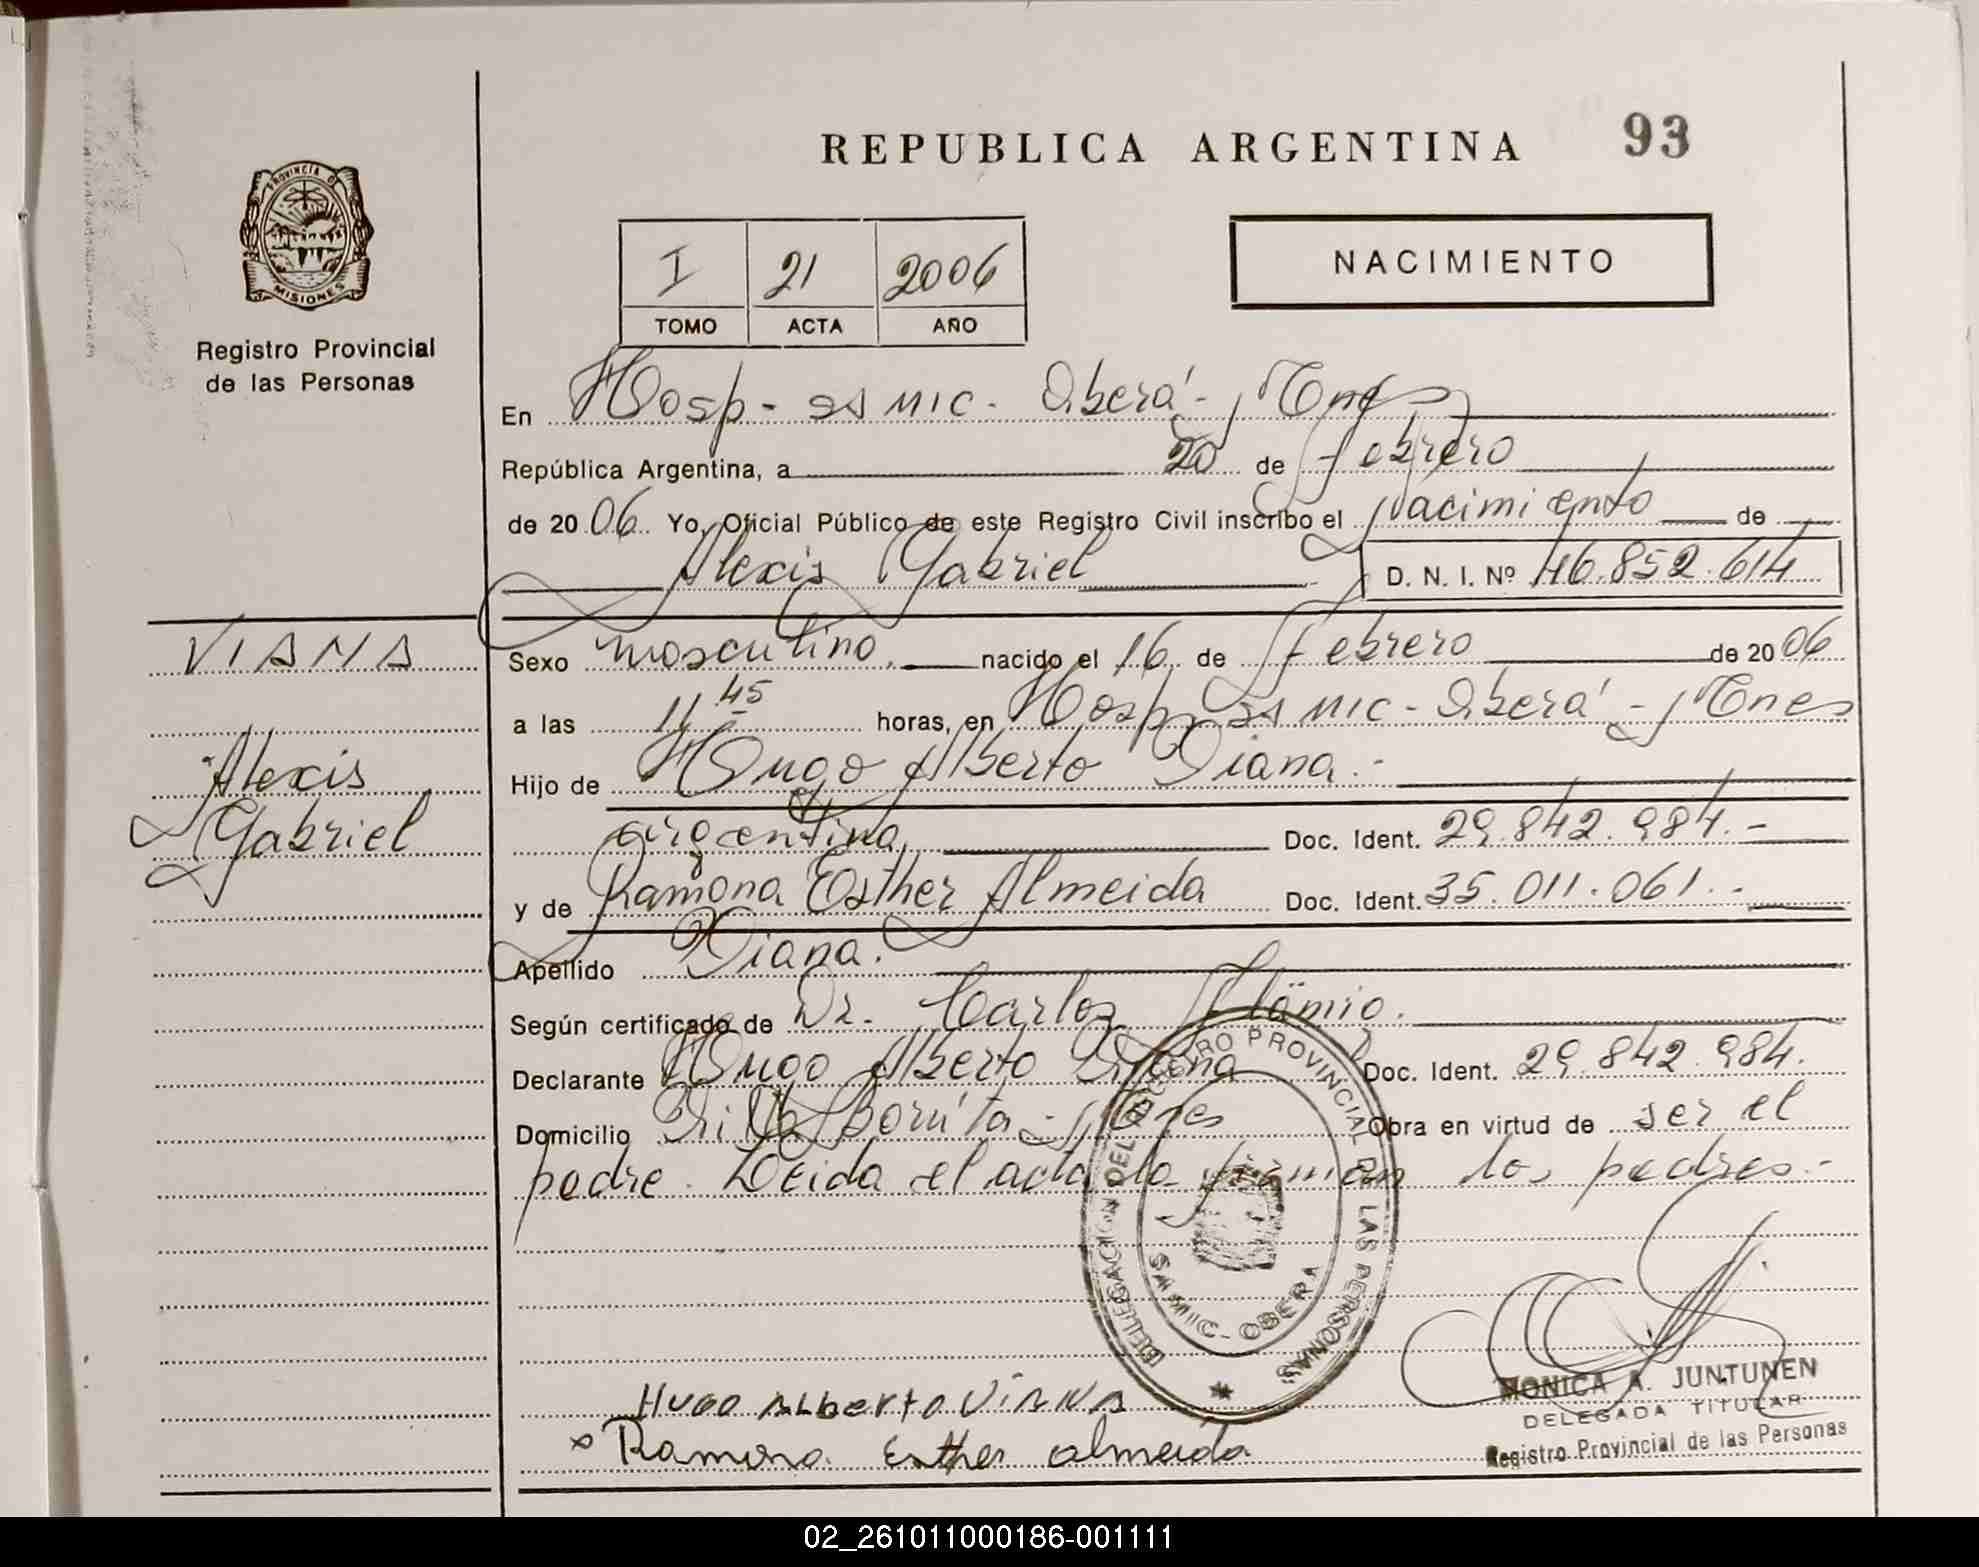 REPUBLICA ARGENTINA 93
PROVINCIA DE
MISIONES
Registro Provincial
de las Personas
I 21 2006
TOMO ACTA AÑO
NACIMIENTO
En Hosp - SAMIC - Oberá - Mnes
República Argentina, a 20 de febrero
de 2006 Yo, Oficial Público de este Registro Civil inscribo el Nacimiento de
Alexis Gabriel D. N. I. Nº 46.852.614
VIANA
Alexis
Gabriel
Sexo masculino. nacido el 16 de febrero de 2006
a las 11 45 horas, en Hosp SAMIC - Oberá - Mnes
Hijo de Hugo Alberto Viana.-
argentina Doc. Ident. 29.842.984.-
y de Ramona Esther Almeida Doc. Ident. 35.011.061.-
Apellido Viana.
Según certificado de Dr. Carlos
Declarante Hugo Alberto Viana Doc. Ident. 29.842.984.
Domicilio Villa Bonita - Mnes Obra en virtud de ser el
padre. Leida el acta la firman los padres.-
DELEGACION DEL REGISTRO PROVINCIAL DE LAS PERSONAS
SAMIC - OBERA
HUGO ALberto ViANA
x Ramona Esther almeida
MONICA A. JUNTUNEN
DELEGADA TITULAR
Registro Provincial de las Personas
02_261011000186-001111